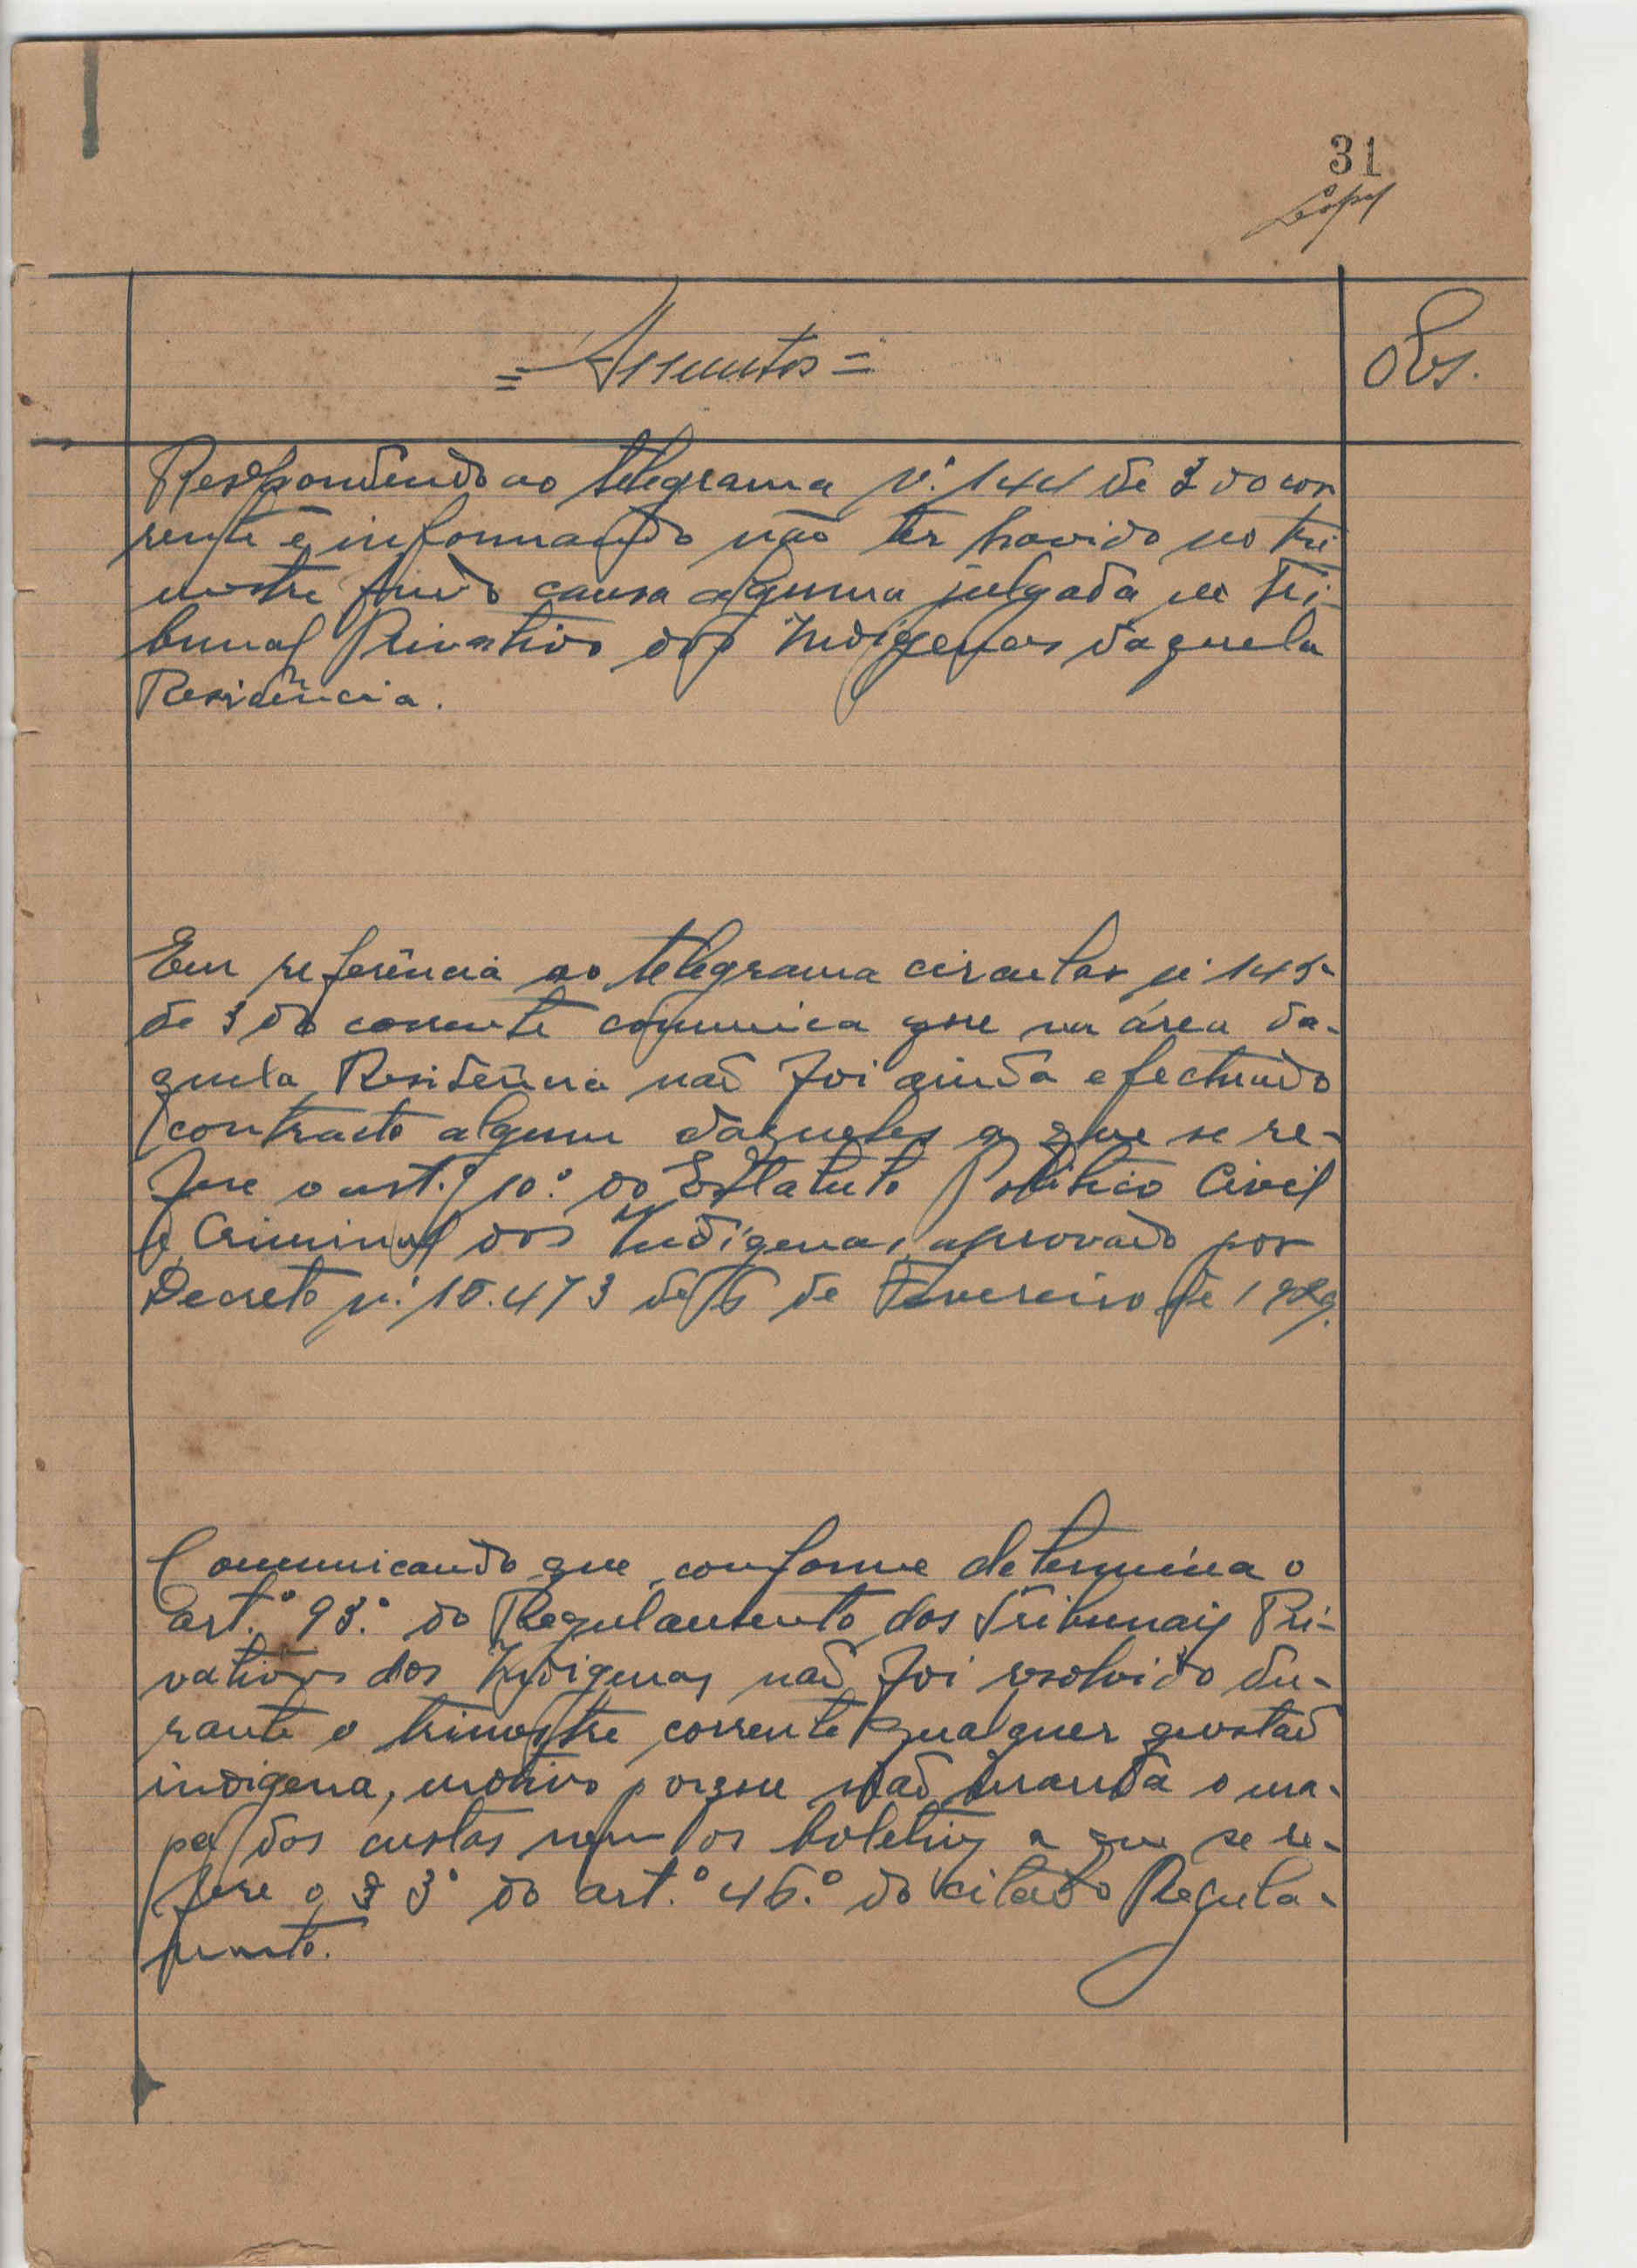 31
= Assuntos =
Obs.
Respondendo ao telegrama nº 144 de 3 do cor
rente e informando não ter havido no tri
mestre findo causa alguma julgada no Tri-
bunal Privativo dos Indigenas daquela
Residência.
Em referência ao telegrama circular nº 145
de 3 do corrente comunica que na área da-
quela Residência não foi ainda efectuado
contracto algum daqueles a que se re-
fere o art.º 10.º do Estatuto Politico Civil
e Criminal dos Indigenas, aprovado por
Decreto nº 16.473 de 6 de Fevereiro de 1929.
Comunicando que, conforme determina o
art.º 93.º do Regulamento dos Tribunais Pri-
vativos dos Indigenas não foi resolvido du-
rante o trimestre corrente qualquer questão
indigena, motivo porque não manda o ma-
pa das custas nem os boletins a que se re-
fere o § 3º do art.º 46.º do citado Regula-
mento.